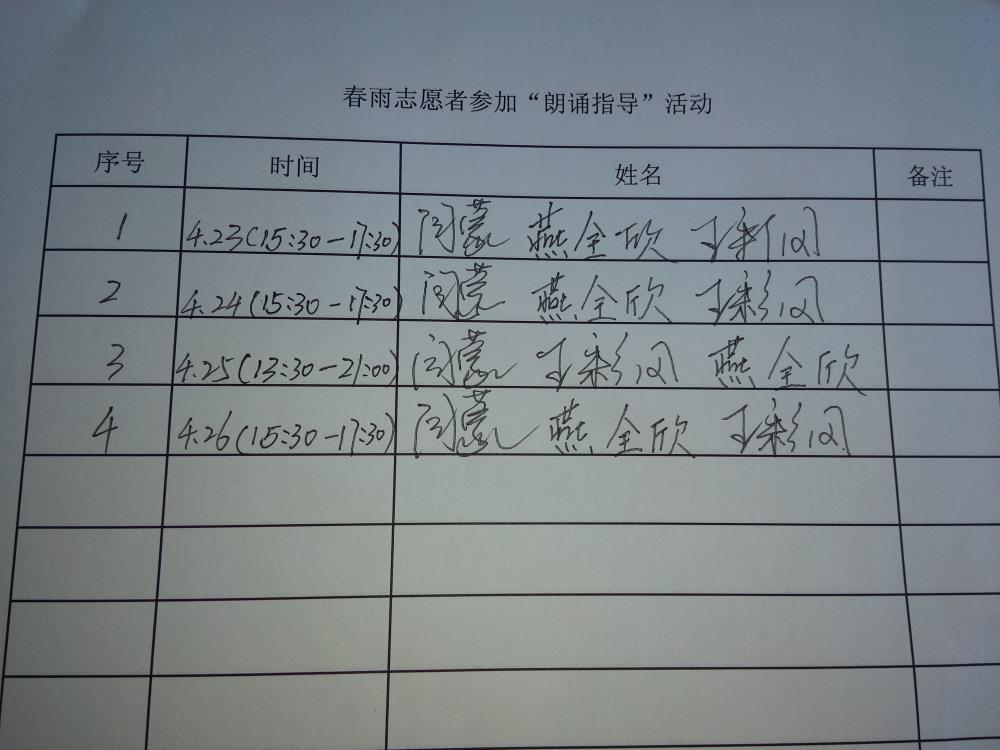 春雨志愿者参加“朗诵指导”活动
序号 时间 姓名 备注
1 4.23(15:30-17:30) 闫蕊 燕全欣 王彩闪
2 4.24(15:30-17:30) 闫蕊 燕全欣 王彩闪
3 4.25(13:30-21:00) 闫蕊 王彩闪 燕全欣
4 4.26(15:30-17:30) 闫蕊 燕全欣 王彩闪